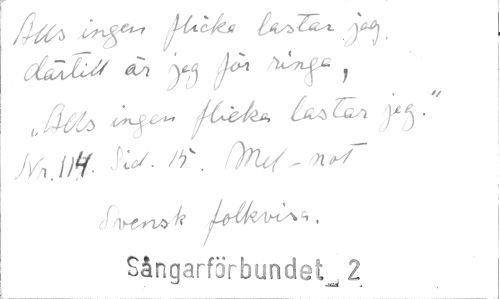 Alls ingen flicka lastar jag.
därtill är jag för ringa,
„Alls ingen flicka lastar jag."
Nr. 114. Sid. 15. Mel-not
Svensk folkvisa.
Sångarförbundet 2